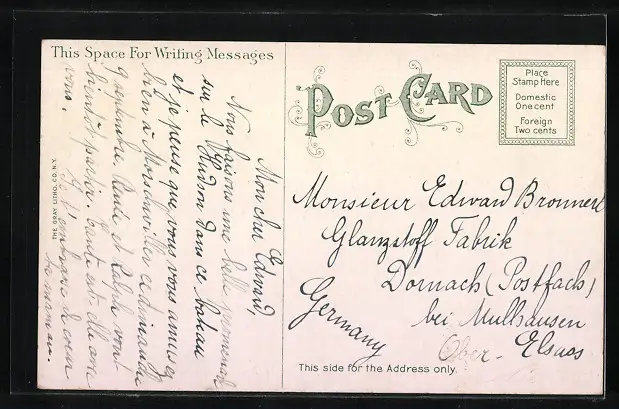 This Space For Writing Messages
Mon cher Edward,
Nous faisons une belle promenade
sur le Hudson dans ce bateau
et je pense que vous vous amusez
bien à ce dimanche
septembre. et Ralph vont
bientôt
vous. Je t'embrasse
ta maman.
THE GRAY LITHO. CO. N.Y.
POST CARD
Place
Stamp Here
Domestic
One cent
Foreign
Two cents
Monsieur Edward Bronnert
Glanzstoff Fabrik
Dornach (Postfach)
bei Mulhausen
Ober-Elsass
Germany
This side for the Address only.